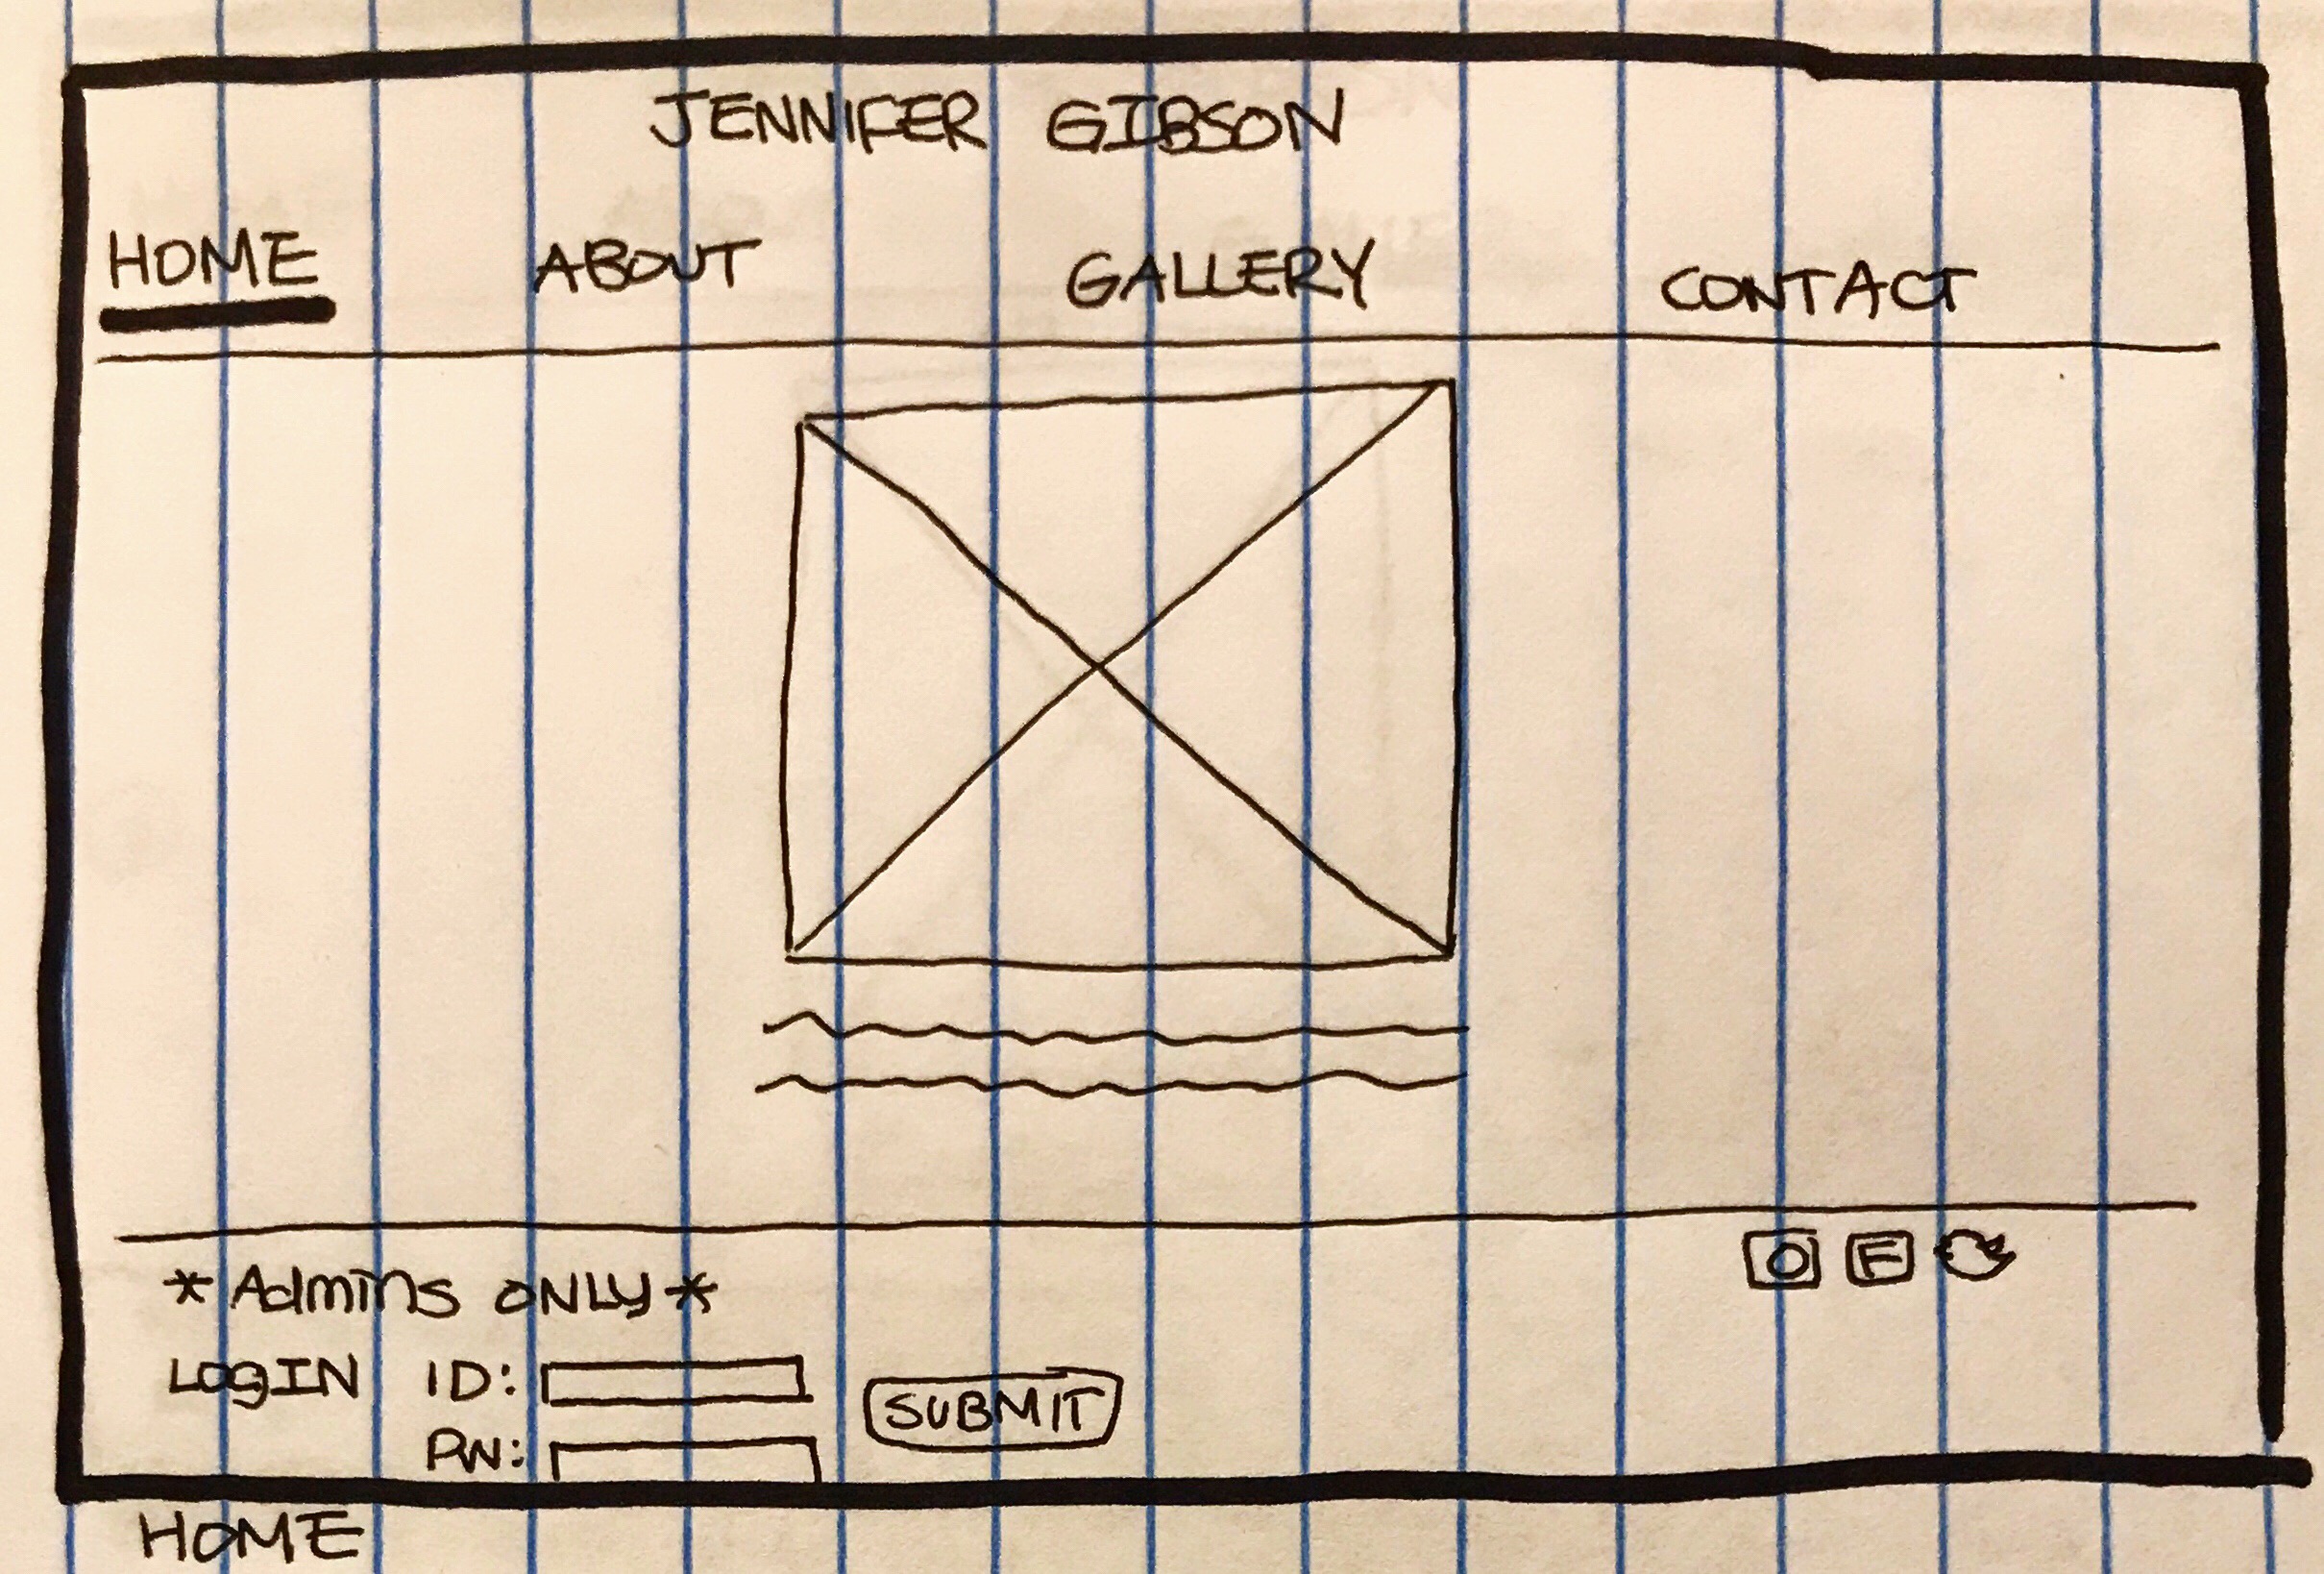 JENNIFER GIBSON
HOME ABOUT GALLERY CONTACT
F
* Admins ONLY *
LOGIN ID:
SUBMIT
PW:
HOME